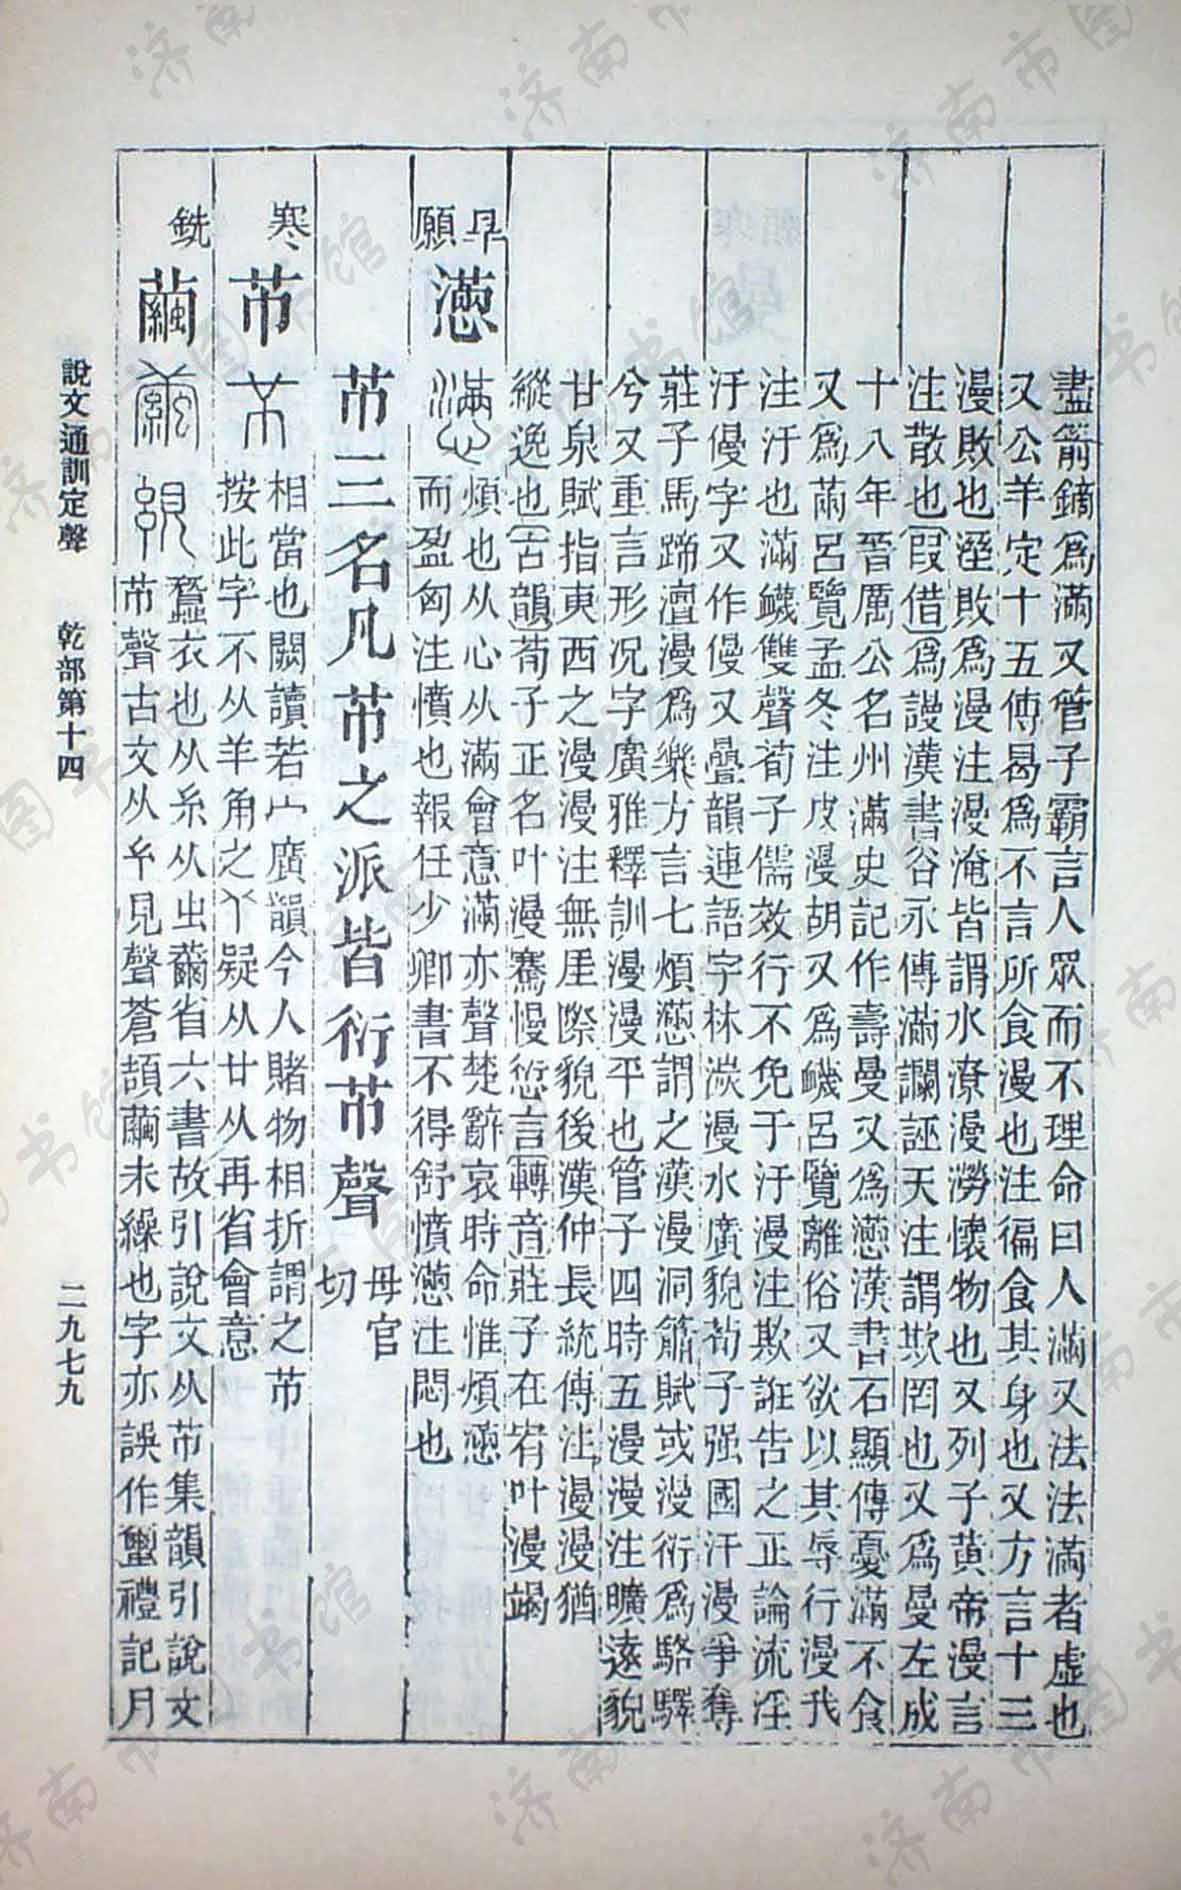 盡箭鏑爲滿又管子霸言人眾而不理命曰人滿又法法滿者虛也
又公羊定十五傳曷爲不言所食漫也注徧食其身也又方言十三
漫敗也溼敗爲漫注漫淹皆謂水潦漫澇懷物也又列子黃帝漫言
注散也假借爲謾漢書谷永傳滿讕誣天注謂欺罔也又爲曼左成
十八年晉厲公名州滿史記作壽曼又爲懣漢書石顯傳憂滿不食
又爲㒼呂覽孟冬注皮漫胡又爲衊呂覽離俗又欲以其辱行漫我
注汙也滿衊雙聲荀子儒效行不免于汙漫注欺誑吿之正論流淫
汙僈字又作僈又曡韻連語字林漭漫水廣貌荀子强國汙漫爭奪
莊子馬蹄澶漫爲樂方言七煩懣謂之漢漫洞簫賦或漫衍爲駱驛
兮又重言形况字廣雅釋訓漫漫平也管子四時五漫漫注曠遠貌
甘泉賦指東西之漫漫注無厓際貌後漢仲長統傳注漫漫猶
縱逸也古韻荀子正名叶漫騫慢愆言轉音莊子在宥叶漫
旱
願
懣
煩也从心从滿會意滿亦聲楚辭哀時命惟煩懣
而盈匈注憤也報任少卿書不得舒憤懣注悶也
㒼三名凡㒼之派皆衍㒼聲 母官
切
寒
㒼
相當也闕讀若宀廣韻今人賭物相折謂之㒼
按此字不从羊角之丫疑从廿从再省會意
銑
繭
蠶衣也从糸从虫㒼省六書故引說文从㒼集韻引說文
㒼聲古文从糸見聲蒼頡繭未繰也字亦誤作蠒禮記月
說文通訓定聲 乾部第十四 二九七九